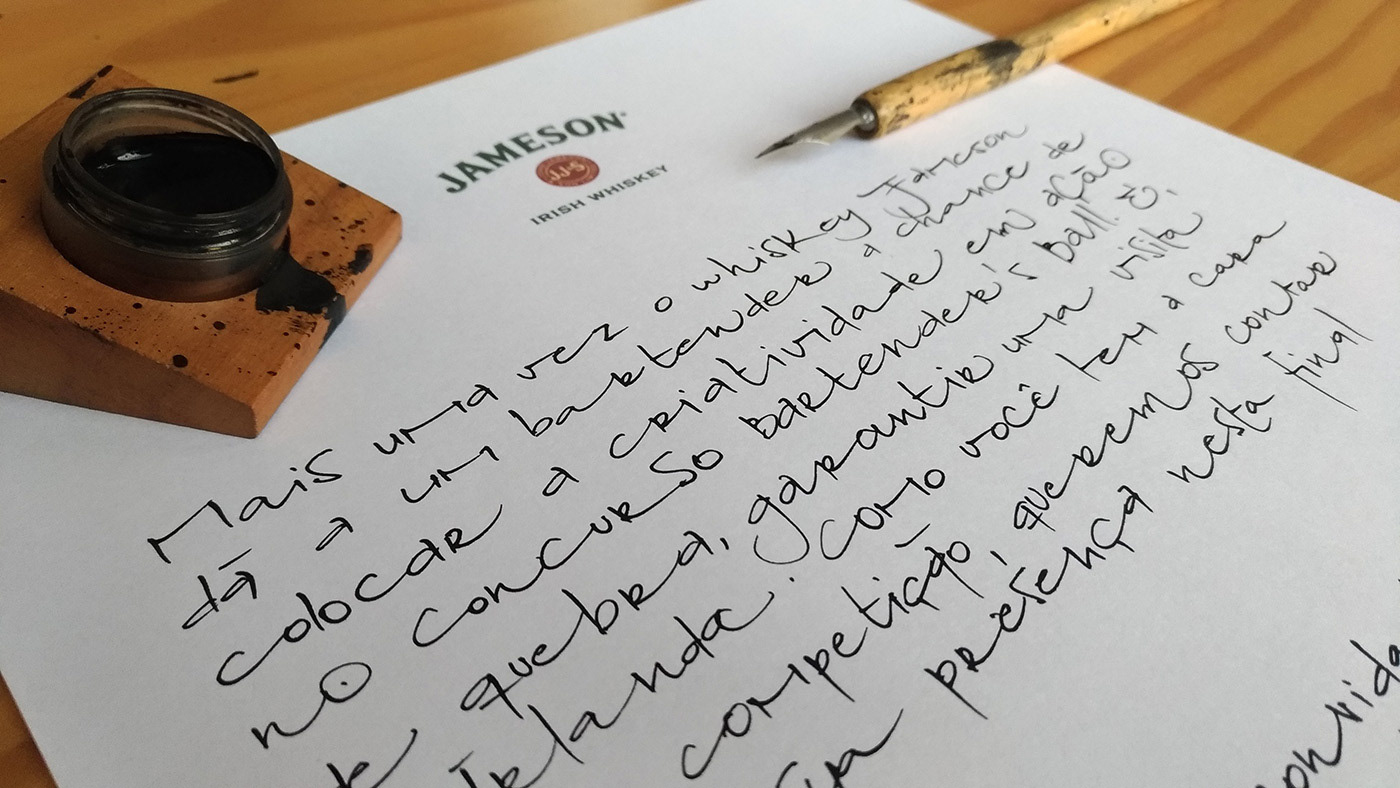 JAMESON
JJ&S
IRISH WHISKEY
Mais uma vez o whiskey Jameson
dá a um bartender a chance de
colocar a criatividade em ação
no concurso bartender's ball. E,
de quebra, garantir uma visita
Irlanda. Como você tem a cara
competição, queremos contar
presença nesta final